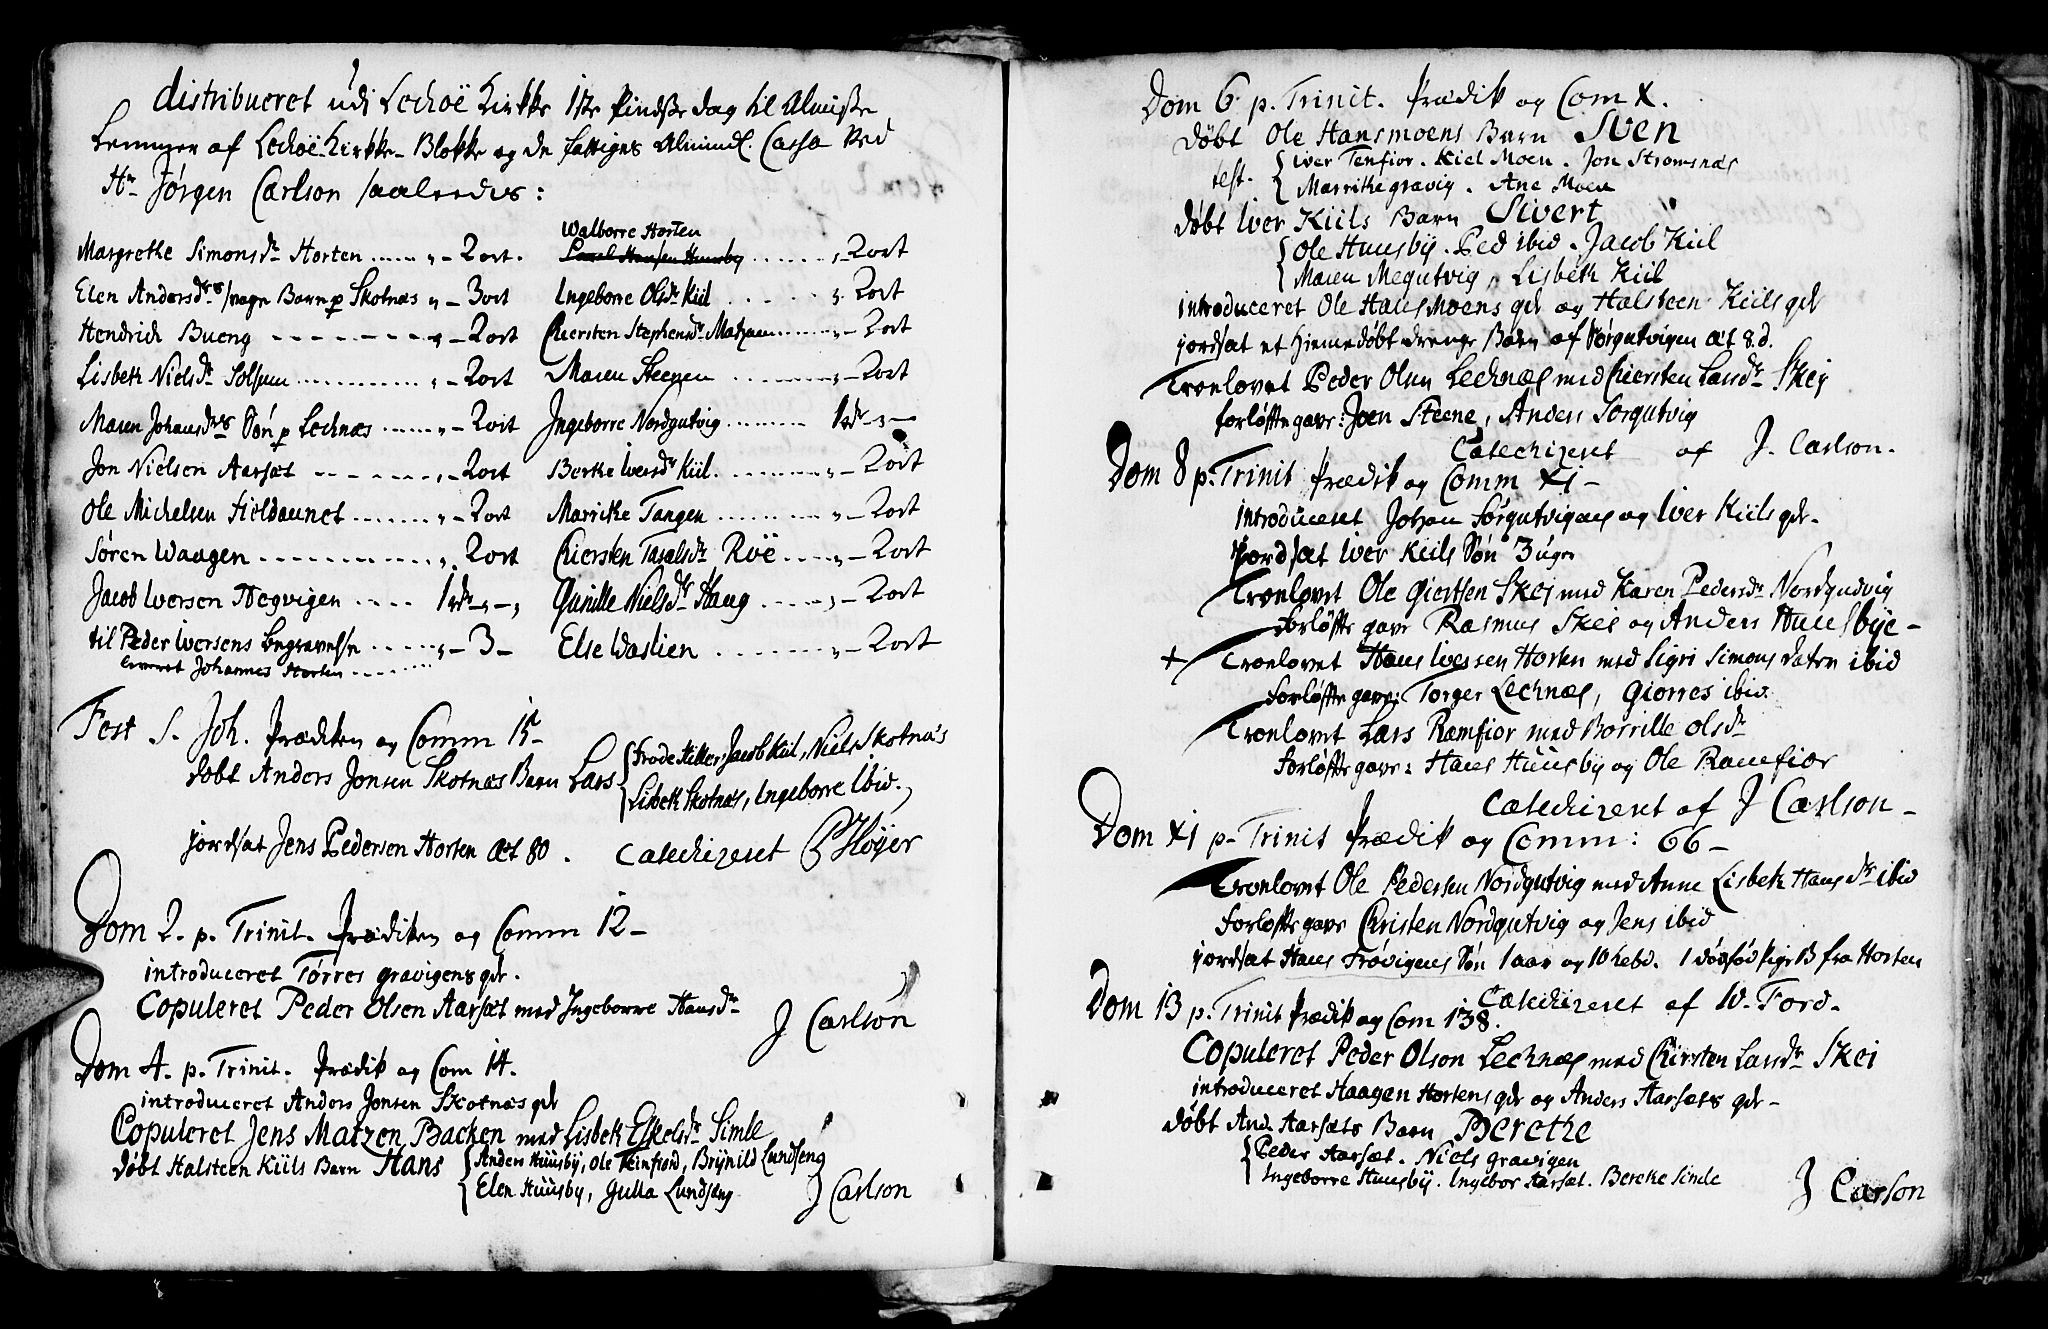 distribueret udi Lechöe Kirkke 1ste Pindsse dag til Almisse
Lemmer af Lechöe Kirkke-Blokke og de fattiges Almind. Cassa ved
Hr Jørgen Carlson saaledes:
Margrethe Simonsdr Horten ...... „ - 2 ort.
Elen Andersdrs svage Barn p Skotnæs „ - 3 ort
Hendrich Bueng - - - - - - - - „ - 2 ort
Lisbeth Nielsdr Solsem ............ „ - 2 ort
Maren Johansdrs Søn p Lechnæs ...... „ - 2 ort
Jon Nielsen Aarsæt - - - - - - - „ - 2 ort
Ole Michelsen Hildaunet ....... „ - 2 ort
Søren Waagen - - - - - - - - - „ 2 ort
Jacob Iversen Hegvigen .... 1 rdr „ - „
til Peder Iversens begravelse ...... „ - 3 -
leveret Johannes Horten .........
Walborre Horten
...... „ 2 ort
Ingeborre Olsdr Kiil . - - - - - „ 2 ort
Chiersten Stephensdr Matzen ....... „ - 2 ort
Maren Steenen ......... „ - 2 ort
Ingeborre Nordgutvig ........ 1 rdr - „ -
Berethe Iversdr Kiil. ......... „ - 2 ort
Marrithe Tangen ........... „ - 2 ort
Chiersten Roë ..... „ - 2 ort
Gunille Nielsdr Haug ...... „ - 2 ort
Else Waslien ........... „ - 2 ort
Fest S. Joh. Prædiken og Comm 15 -
døbt Anders Jonsen Skotnæs Barn Lars { Frode Hitter, Jacob Kiil, Niels Skotnæs
{ Lisbeth Skotnæs, Ingeborre Ibid.
jordsat Jens Pedersen Horten æt 80 . Catechizeret P Høyer
Dom 2. p. Trinit. Prædiken og Comm 12 -
introduceret Tørres gravigens qde.
Copuleret Peder Olsen Aarsæt med Ingeborre Hansdr
J Carlson
Dom 4. p. Trinit. Prædik og Com 14.
introduceret Anders Jonsen Skotnæs qde
Copuleret Jens Matzen Backen med Lisbeth Eskelsdr Simle
døbt Halsteen Kiils Barn Hans { Anders Huusby, Ole Teinfiord, Brynild Lundseng
{ Elen Huusby, Gulla Lundseng
J Carlson
Dom 6 p. Trinit. Prædik og Com X.
døbt Ole Hansmoens Barn Sven
test. { Iver Tenfior. Kiel Moen. Jon Stromsnæs
{ Marrithe gravig. Ane Moen
døbt Iver Kiils Barn Sivert
{ Ole Huusby. Ped ibid. Jacob Kiil
{ Maren Megutvig, Lisbeth Kiil
introduceret Ole Hansmoens qde og Halsteen Kiils qde
jordsat et hiemedøbt drenge Barn af Sørgutvigen æt 8 d.
Troelovet Peder Olsen Lechnæs med Chiersten Larsdr Skej
forløfte gave: Joen Steene, Anders Sørgutvig
Catechizeret af J. Carlson.
Dom 8 p. Trinit Prædik og Comm XI -
introduceret Johan Sørgutvigens og Iver Kiils qde.
jordsat Iver Kiils Søn 3 uger
Troelovet Ole Giertsen Skej med Karen Pedersdr Nordgudvig
forløfte gave Rasmus Skei og Anders Huusbye -
+ Troelovet Hans Iversen Horten med Sigri Simons daten ibid
forløfte gave: Torger Lechnæs, Giorres ibid.
Troelovet Lars Ramfior med Borrille Olsdr
forløfte gave: Hans Huusby og Ole Ramfior
Catechizeret af J Carlson -
Dom XI p. Trinit Prædik og Comm: 66 -
Troelovet Ole Pedersen Nordgutvig med Anne Lisbeth Hansdr ibid
forløfte gave Christen Nordgutvig og Jens ibid
jordsat Hans Frøvigens Søn 1 aar og 10 hebd. 1 døføød pige B fra Horten
Catechizeret af W. Ford.
Dom 13 p. Trinit Prædik og Com 138.
Copuleret Peder Olson Lechnæs med Chirsten Larsdr Skei
introduceret Haagen Hortens qde og Anders Aarsæts qde -
døbt And. Aarsæts Barn Berethe
{ Peder Aarsæt. Niels gravigen
{ Ingeborre Huusby. Ingebor Aarsæt. Berethe Simle
J Carlson